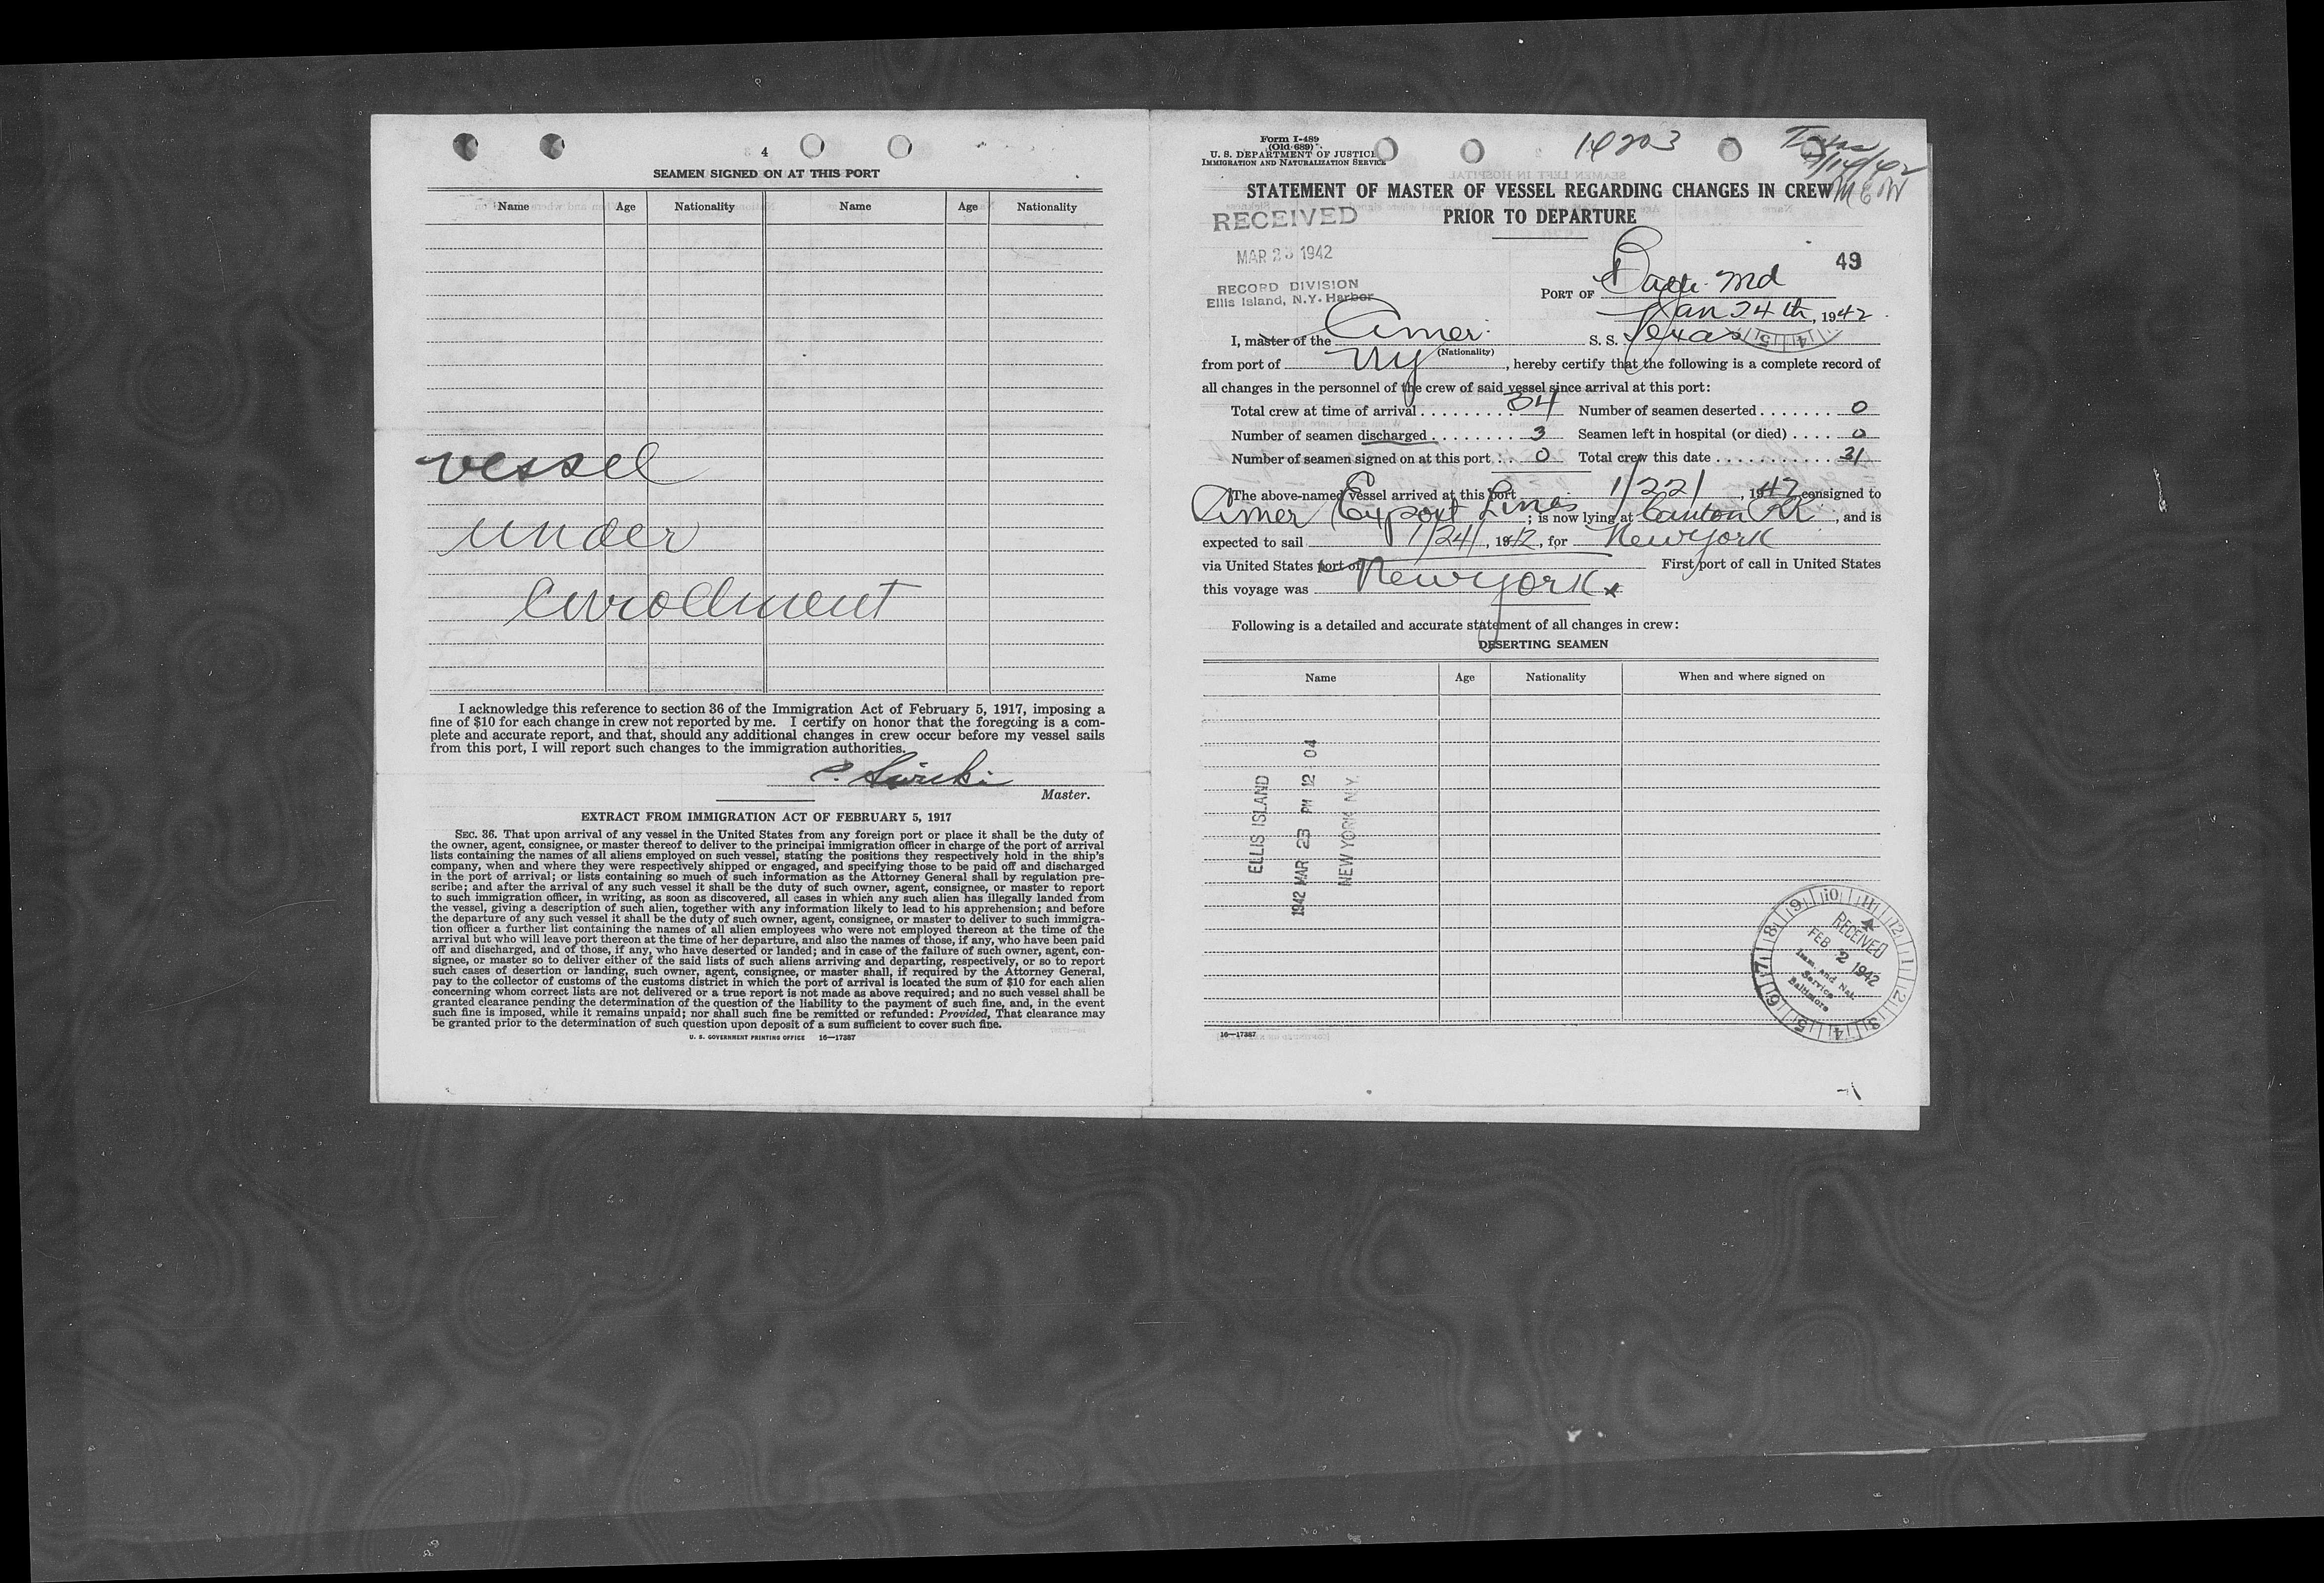 4
SEAMEN SIGNED ON AT THIS PORT
Name Age Nationality Name Age Nationality
vessel
under
enrollment
I acknowledge this reference to section 36 of the Immigration Act of February 5, 1917, imposing a
fine of $10 for each change in crew not reported by me. I certify on honor that the foregoing is a com-
plete and accurate report, and that, should any additional changes in crew occur before my vessel sails
from this port, I will report such changes to the immigration authorities.
Master.
EXTRACT FROM IMMIGRATION ACT OF FEBRUARY 5, 1917
SEC. 36. That upon arrival of any vessel in the United States from any foreign port or place it shall be the duty of
the owner, agent, consignee, or master thereof to deliver to the principal immigration officer in charge of the port of arrival
lists containing the names of all aliens employed on such vessel, stating the positions they respectively hold in the ship's
company, when and where they were respectively shipped or engaged, and specifying those to be paid off and discharged
in the port of arrival; or lists containing so much of such information as the Attorney General shall by regulation pre-
scribe; and after the arrival of any such vessel it shall be the duty of such owner, agent, consignee, or master to report
to such immigration officer, in writing, as soon as discovered, all cases in which any such alien has illegally landed from
the vessel, giving a description of such alien, together with any information likely to lead to his apprehension; and before
the departure of any such vessel it shall be the duty of such owner, agent, consignee, or master to deliver to such immigra-
tion officer a further list containing the names of all alien employees who were not employed thereon at the time of the
arrival but who will leave port thereon at the time of her departure, and also the names of those, if any, who have been paid
off and discharged, and of those, if any, who have deserted or landed; and in case of the failure of such owner, agent, con-
signee, or master so to deliver either of the said lists of such aliens arriving and departing, respectively, or so to report
such cases of desertion or landing, such owner, agent, consignee, or master shall, if required by the Attorney General,
pay to the collector of customs of the customs district in which the port of arrival is located the sum of $10 for each alien
concerning whom correct lists are not delivered or a true report is not made as above required; and no such vessel shall be
granted clearance pending the determination of the question of the liability to the payment of such fine, and, in the event
such fine is imposed, while it remains unpaid; nor shall such fine be remitted or refunded: Provided, That clearance may
be granted prior to the determination of such question upon deposit of a sum sufficient to cover such fine.
U. S. GOVERNMENT PRINTING OFFICE 16—17387
Form I-489
(Old 689)
U. S. DEPARTMENT OF JUSTICE
IMMIGRATION AND NATURALIZATION SERVICE
14203
MEW
STATEMENT OF MASTER OF VESSEL REGARDING CHANGES IN CREW
PRIOR TO DEPARTURE
RECEIVED
MAR 23 1942
RECORD DIVISION
Ellis Island, N.Y. Harbor
49
PORT OF Balto. Md
Jan 24th, 1942
I, master of the Amer. S. S. Texas
(Nationality)
from port of NY, hereby certify that the following is a complete record of
all changes in the personnel of the crew of said vessel since arrival at this port:
Total crew at time of arrival 34 Number of seamen deserted 0
Number of seamen discharged 3 Seamen left in hospital (or died) 0
Number of seamen signed on at this port 0 Total crew this date 31
The above-named vessel arrived at this port 1/22/, 1942 consigned to
Amer Export Lines; is now lying at Canton RR, and is
expected to sail 1/24/, 1942, for New York
via United States port of First port of call in United States
this voyage was New York
Following is a detailed and accurate statement of all changes in crew:
DESERTING SEAMEN
Name Age Nationality When and where signed on
ELLIS ISLAND
1942 MAR 23 PM 12 04
NEW YORK N.Y.
RECEIVED
FEB 2 1942
Imm. and Nat.
Service
Baltimore
16—17387